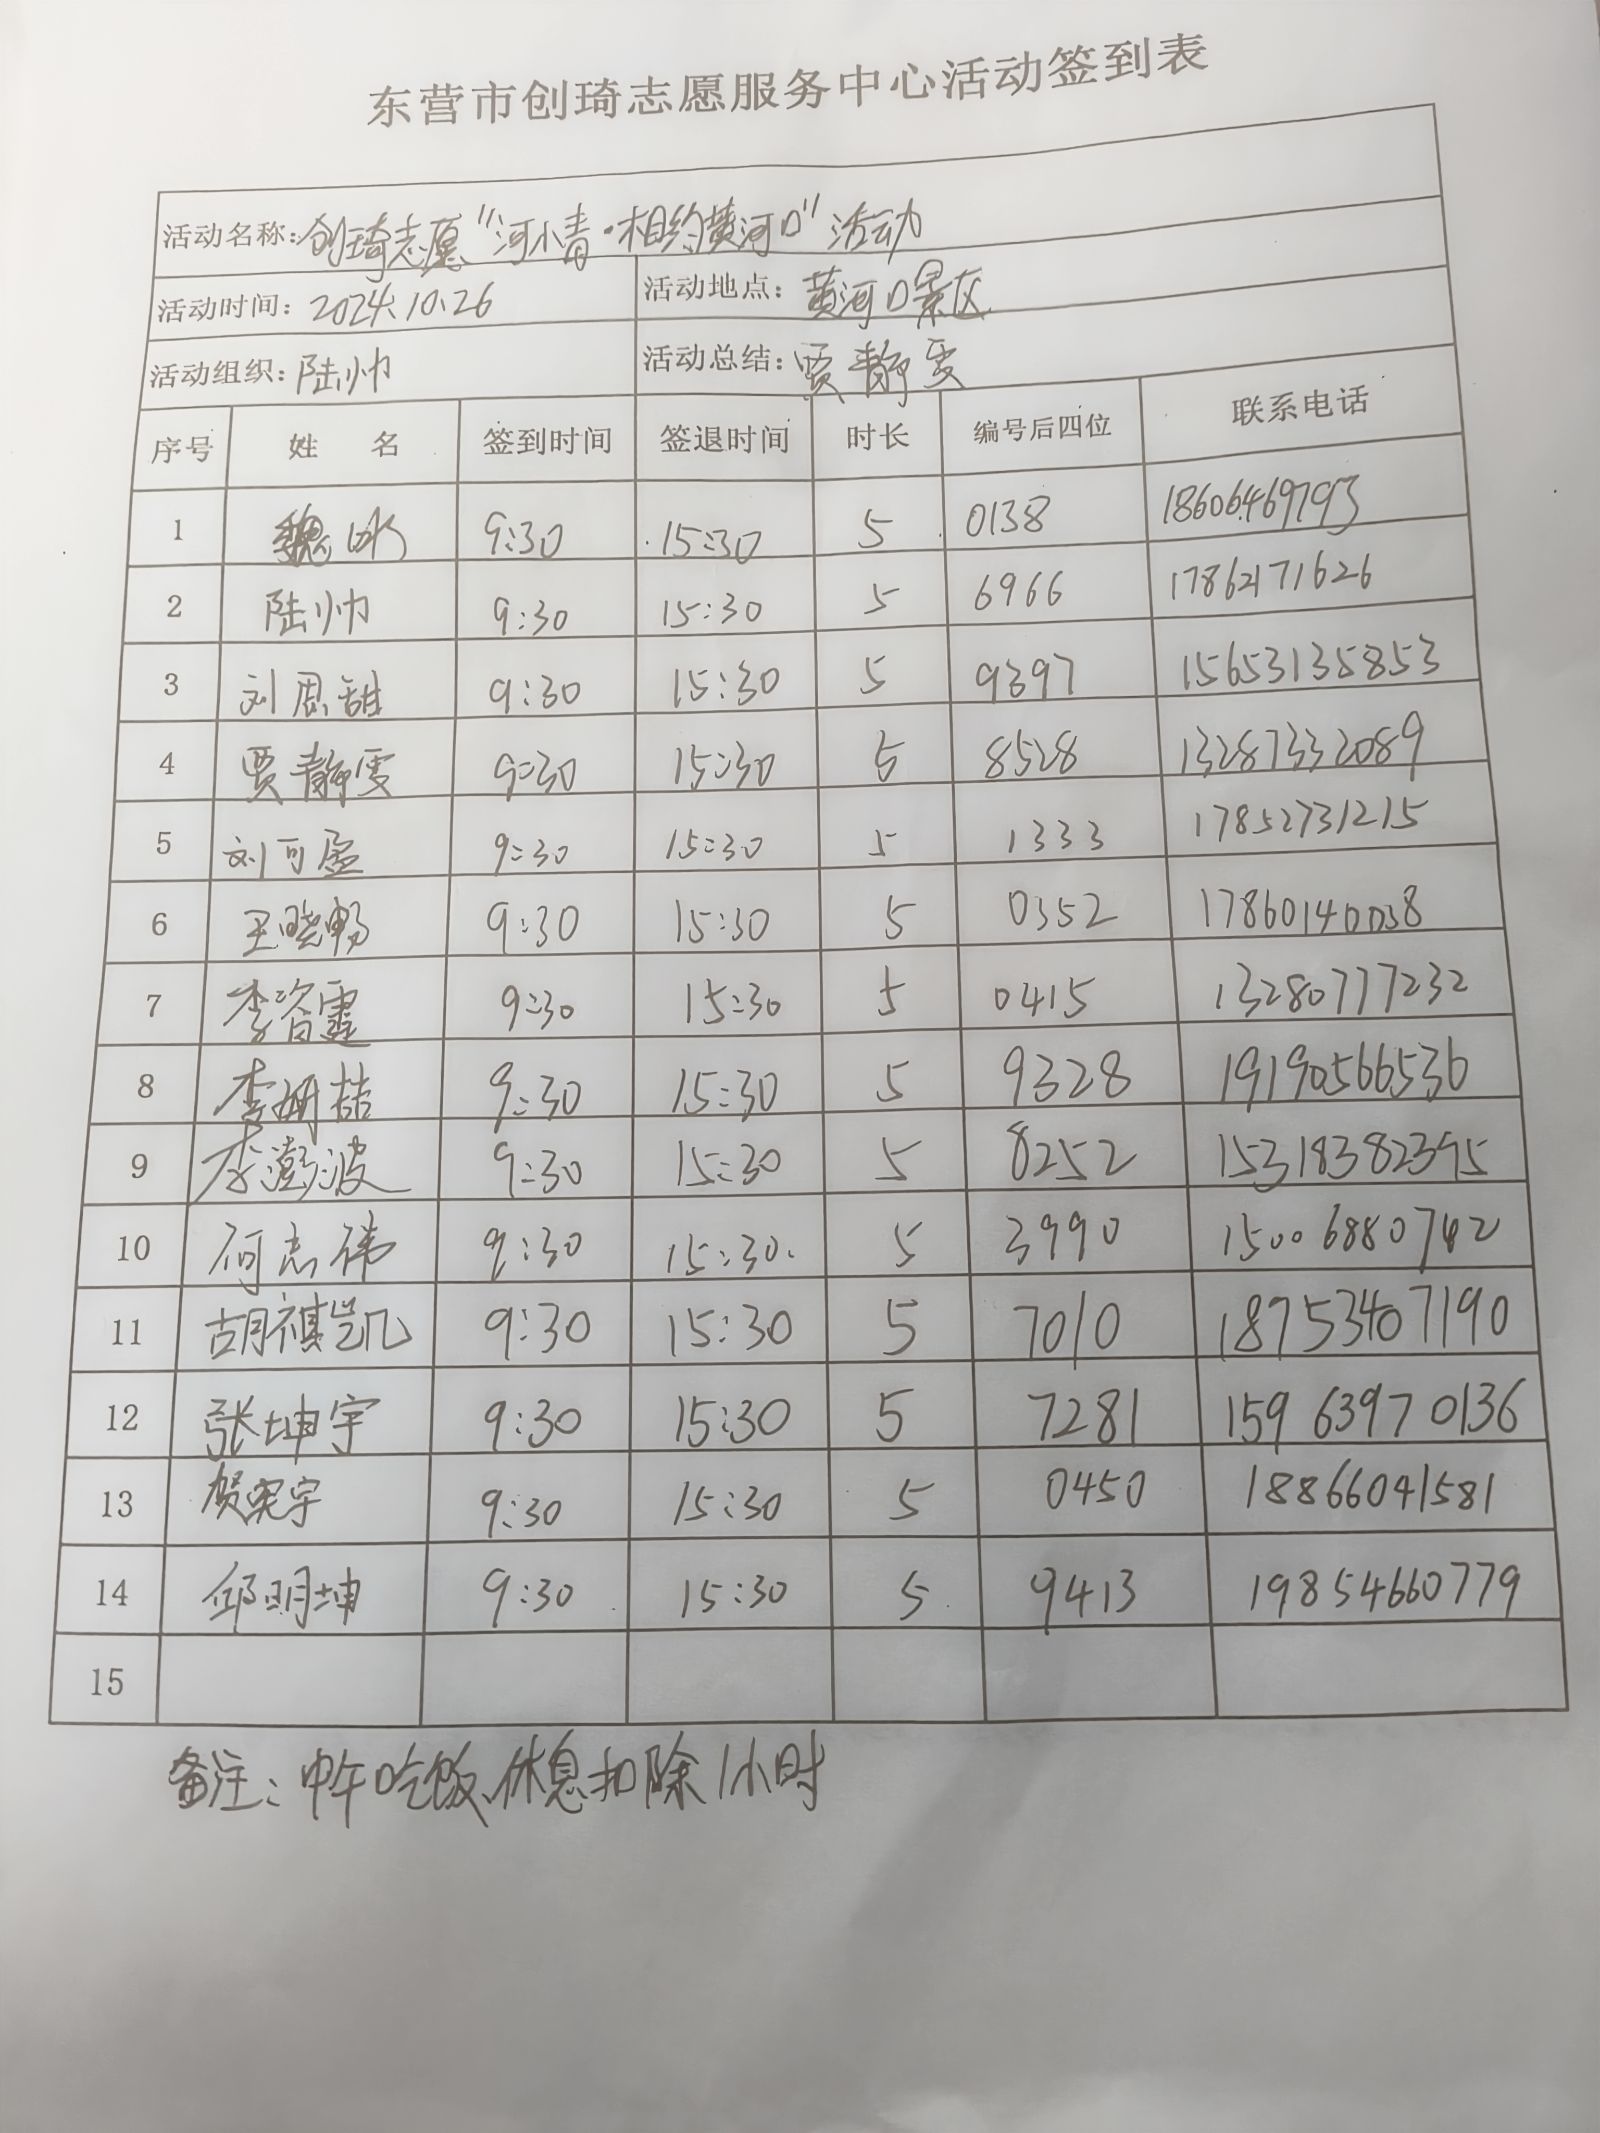 东营市创琦志愿服务中心活动签到表
活动名称:创琦志愿"河小青·相约黄河口"活动
活动时间: 2024.10.26 活动地点: 黄河口景区
活动组织: 陆帅 活动总结: 贾静雯
序号 姓 名 签到时间 签退时间 时长 编号后四位 联系电话
1 魏冰 9:30 15:30 5 0138 18606469793
2 陆帅 9:30 15:30 5 6966 17862171626
3 刘恩甜 9:30 15:30 5 9397 15653135853
4 贾静雯 9:30 15:30 5 8528 13287332089
5 刘可盈 9:30 15:30 5 1333 17852731215
6 王晓畅 9:30 15:30 5 0352 17860140038
7 李 9:30 15:30 5 0415 13280777232
8 李 9:30 15:30 5 9328 19190566536
9 李澎波 9:30 15:30 5 8252 15318382395
10 何志伟 9:30 15:30 5 3990 15006880742
11 胡祺凯 9:30 15:30 5 7010 18753407190
12 张坤宇 9:30 15:30 5 7281 15963970136
13 贺宇 9:30 15:30 5 0450 18866041581
14 邱明坤 9:30 15:30 5 9413 19854660779
15
备注: 中午吃饭、休息扣除1小时